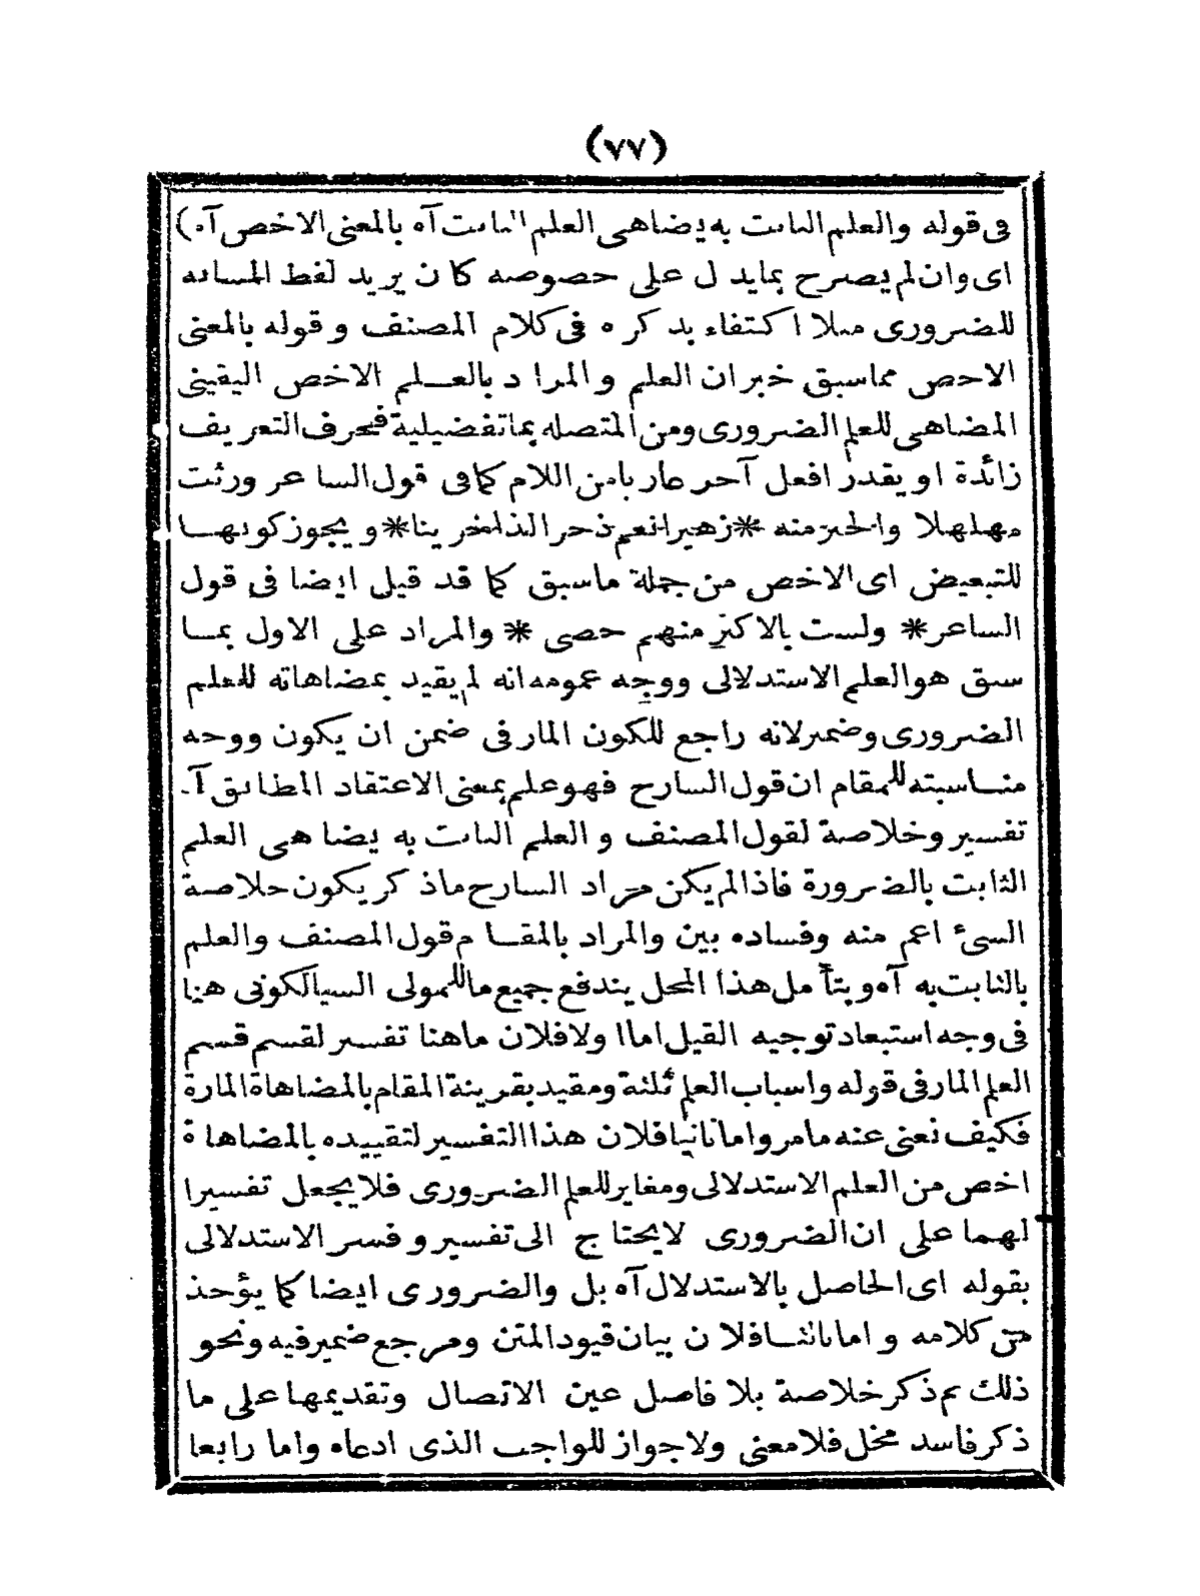 (٧٧)
فى قوله والعلم الثابت به يضاهى العلم الثابت آه بالمعنى الاخص آه)
اى وان لم يصرح بمايد ل على خصوصه كا ن يريد لفظ المشابه
للضرورى مثلا ا كتفاء بذ كر ه فى كلام المصنف و قوله بالمعنى
الاخص مماسبق خبران العلم و المرا د بالعلم الاخص اليقينى
المضاهى للعلم الضرورى ومن المتصله بماتفضيلية فحرف التعريف
زائدة او يقدر افعل آخر عار يامن اللام كمافى قول الشا عر ورثت
مهلهلا والخير منه *زهيرا نعم ذخر الذاخر ينا* و يجوز كونهـا
للتبعيض اى الاخص من جملة ماسبق كما قد قيل ايضا فى قول
الشاعر* ولست بالاكثر منهم حصى * والمراد على الاول بمـا
سبق هو العلم الاستدلالى ووجه عمومه انه لم يقيد بمضاهاته للعلم
الضرورى وضميرلانه راجع للكون المار فى ضمن ان يكون ووجه
منـاسبته للمقام ان قول الشارح فهو علم بمعنى الاعتقاد المطابق آه
تفسير وخلاصة لقول المصنف و العلم الثابت به يضا هى العلم
الثابت بالضرورة فاذالم يكن مراد الشارح ماذ كر يكون خلاصة
الشىء اعم منه وفساده بين والمراد بالمقـا م قول المصنف والعلم
بالثابت به آه و بتأ مل هذا المحل يندفع جميع ما للمولى السيالكوتى هنا
فى وجه استبعاد توجيه القيل اماا ولا فلان ماهنا تفسير لقسم قسم
العلم المار فى قوله واسباب العلم ثلثة ومقيد بقرينة المقام بالمضاهاة المارة
فكيف نعنى عنه مامر واما ثانيا فلان هذا التفسير لتقييده بالمضاها ة
اخص من العلم الاستدلالى ومغاير للعلم الضرورى فلا يجعل تفسيرا
لهما على ان الضرورى لايحتا ج الى تفسير و فسر الاستدلالى
بقوله اى الحاصل بالاستدلال آه بل والضرورى ايضا كما يؤخذ
من كلامه و اما ثالثـا فلا ن بيان قيود المتن ومرجع ضمير فيه ونحو
ذلك ثم ذكر خلاصة بلا فاصل عين الاتصال وتقديمها على ما
ذكر فاسد مخل فلا معنى ولا جواز للواجب الذى ادعاه واما رابعا